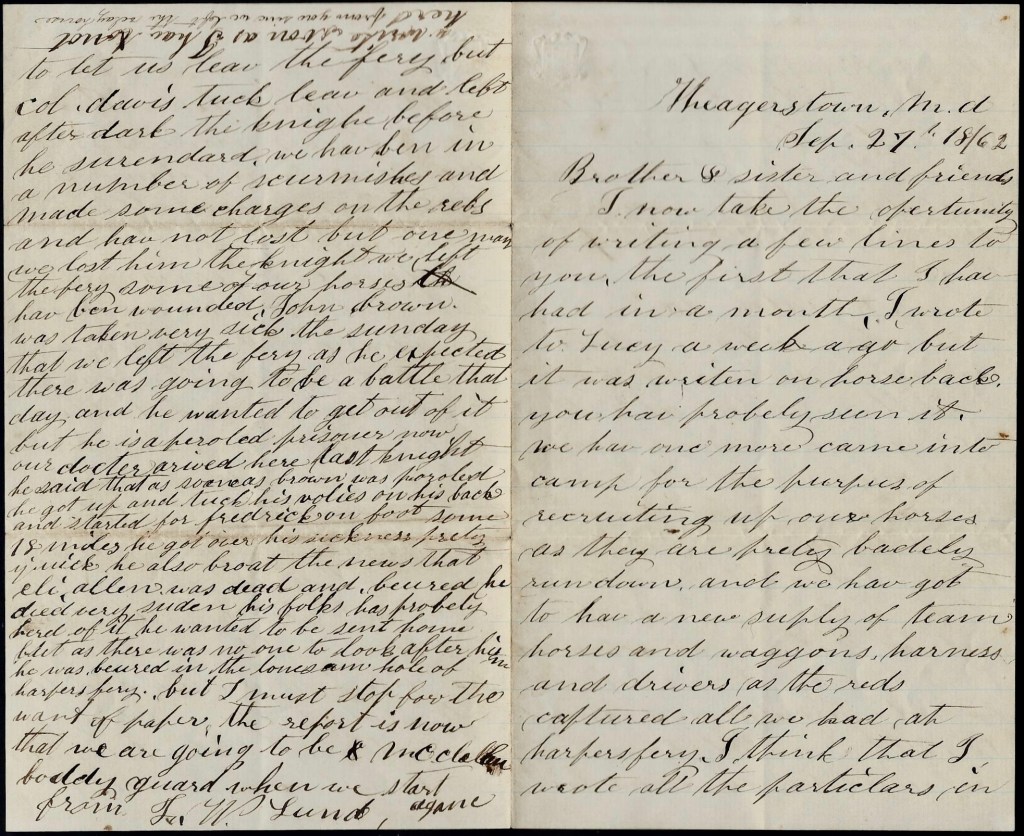 Hheagerstown, M.d
Sep. 27.th 1862
Brother & sister and friends
I now take the opertunity
of writing a few lines to
you, the first that I hav
had in a month, I wrote
to Lucy a week a go but
it was writen on horse back.
you hav probely seen it.
we hav one more came into
camp for the purpus of
recruiting up our horses
as they are prety badely
run down. and we hav got
to hav a new suply of team
horses and waggons, harness
and drivers as the reds
captured all we had at
harpersfery. I think that I
wrote all the particlars in
to let us leav the fery but
col. davis tuck leav and left
after dark the knighe before
he surendard. we hav ben in
a number of scurmishes and
made some charges on the rebs
and hav not lost but one man
we lost him the knight we left
the fery some of our horses
hav ben wounded, John brown.
was taken very sick the sunday
that we left the fery as he expected
there was going to be a battle that
day and he wanted to get out of it
but he is a peroled prisoner now
our docter arived here last knight
he said that as soon as brown was poroled
he got up and tuck his volies on his back
and started for fredrick on foot some
18 miles he got over his sickness prety
quick he also broat the news that
eli allen was dead and beured he
died very suden his folks has probely
herd of it he wanted to be sent home
but as there was no one to look after him
he was beured in the lonesam hole of
harpersfery. but I must stop for the
want of paper, the report is now
that we are going to be mcclellan
boddy guard when we start
agane
from W. Lund,
write as soon as I hav knot
herd from you sinc we left the relay house